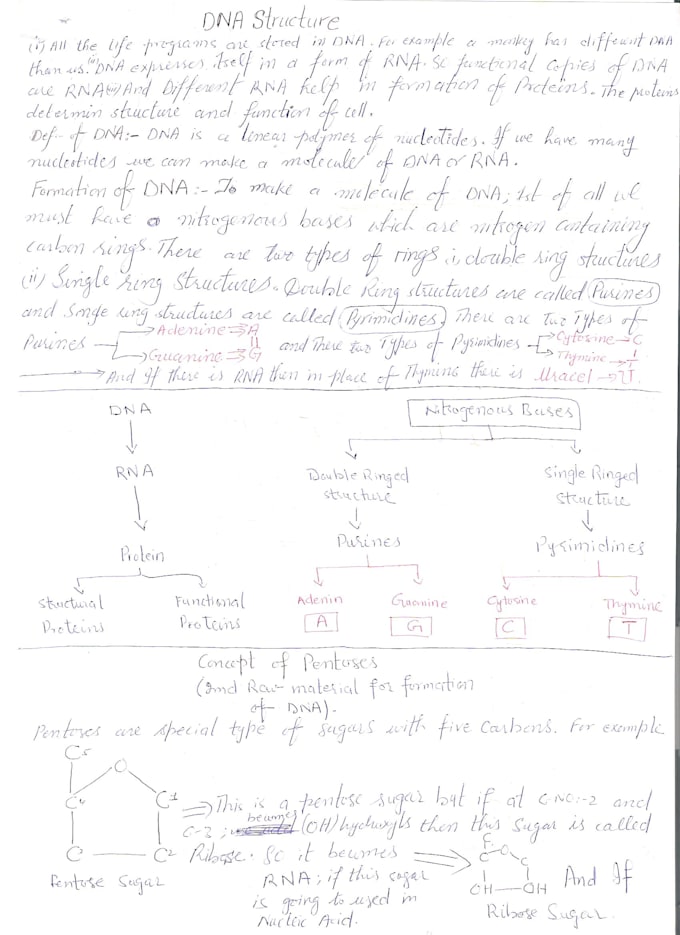 DNA Structure
(i) All the life programs are stored in DNA. For example a monkey has different DNA
than us. (ii) DNA expresses itself in a form of RNA. So functional copies of DNA
are RNA (iii) And Different RNA help in formation of Proteins. The proteins
determin structure and function of cell.
Def. of DNA:- DNA is a linear polymer of nucleotides. If we have many
nucleotides we can make a molecule of DNA or RNA.
Formation of DNA:- To make a molecule of DNA; 1st of all we
must have a nitrogenous bases which are nitrogen containing
carbon rings. There are two types of rings i, double ring structures
(ii) Single ring Structures. Double Ring structures are called Purines
and single ring structures are called Pyrimidines. There are two Types of
Purines Adenine ⇒ A and There two Types of Pyrimidines Cytosine → C
Guanine ⇒ G Thymine → T
→ And If there is RNA then in place of Thymine there is Uracel → U.
DNA Nitrogenous Bases
RNA Double Ringed Single Ringed
structure structure
Protein Purines Pyrimidines
Structural Functional Adenin Guanine Cytosine Thymine
Proteins Proteins A G C T
Concept of Pentoses
(2nd Raw material for formation
of DNA).
Pentoses are special type of sugars with five Carbons. For example
C5
O
C4 C1 ⇒ This is a pentose sugar but if at C-NO:-2 and
C-3; becumes (OH) hydroxyls then this Sugar is called
C3 C2 Ribose. So it becumes ⇒ C O C
Pentose Sugar RNA; if this sugar OH OH And If
is going to used in Ribose Sugar.
Nucleic Acid.